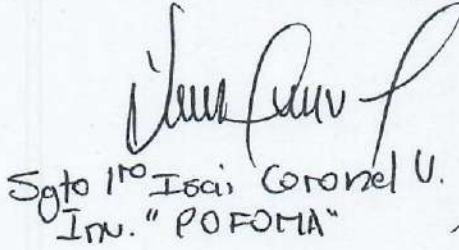 Sgto 1ro Isai Coronel V.
Inv. "POFOMA"